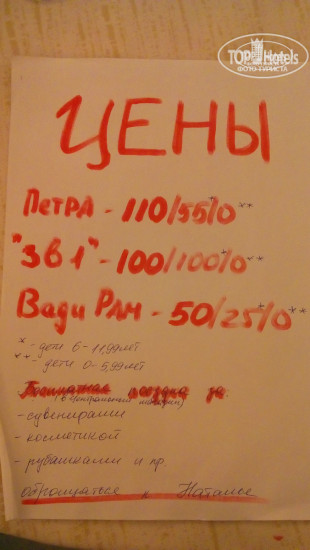 TOP Hotels
ФОТО ТУРИСТА
ЦЕНЫ
ПЕТРА - 110/55*/0**
"3 в 1" - 100/100*/0**
Вади Рам - 50/25*/0**
* - дети 6 - 11,99 лет
** - дети 0 - 5,99 лет
поездка за
(в центральный
- сувенирами
- косметикой
- рубашками и пр
обращаться к Наталье